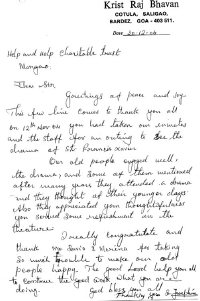 Krist Raj Bhavan
COTULA, SALIGAO,
BARDEZ. GOA - 403 511.
Date 30-12-06
Help and Help Charitable Trust
Dear Sir,
Greetings of peace and joy.
This few line comes to thank you all
on 12th Nov 06 you had taken our inmates
and the staff for an outing to see the
drama of St. Francis Xavier
Our old people enjoyed well,
the drama, and some of them mentioned
after many years they attended a drama
and they thought of their younger days.
Also they appreciated your thoughtfulness
you served some refreshment in the
theature.
I really congratulate and
thank Mr and Merina for taking
so much trouble to make our old
people happy. The good Lord help you all
to continue the good work what you are
doing. God bless you all
Thanking you